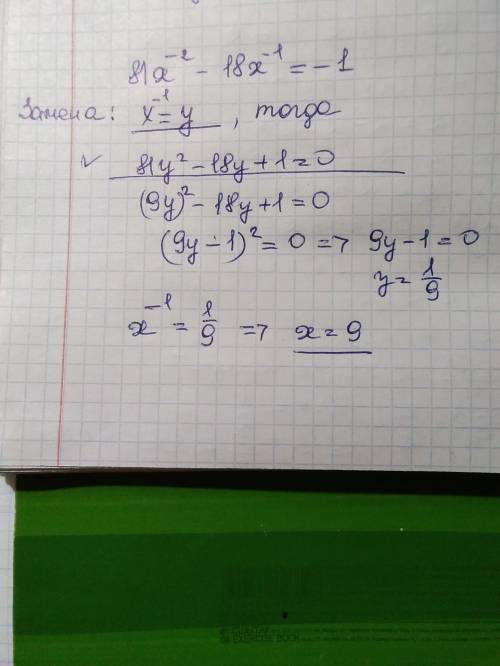 81x⁻² - 18x⁻¹ = -1
Замена: x⁻¹ = y, тогда
✓ 81y² - 18y + 1 = 0
(9y)² - 18y + 1 = 0
(9y - 1)² = 0 => 9y - 1 = 0
y = 1/9
x⁻¹ = 1/9 => x = 9
EXERCISE BOOK